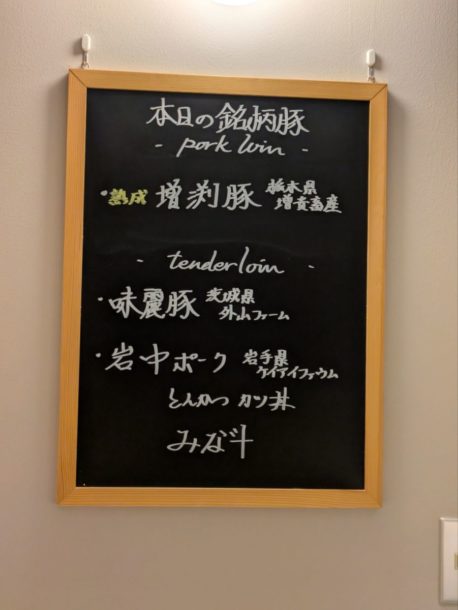 本日の銘柄豚
- pork loin -
・熟成 増渕豚 栃木県
増貴畜産
- tenderloin -
・味麗豚 茨城県
外山ファーム
・岩中ポーク 岩手県
ケイアイファウム
とんかつ カツ丼
みな斗